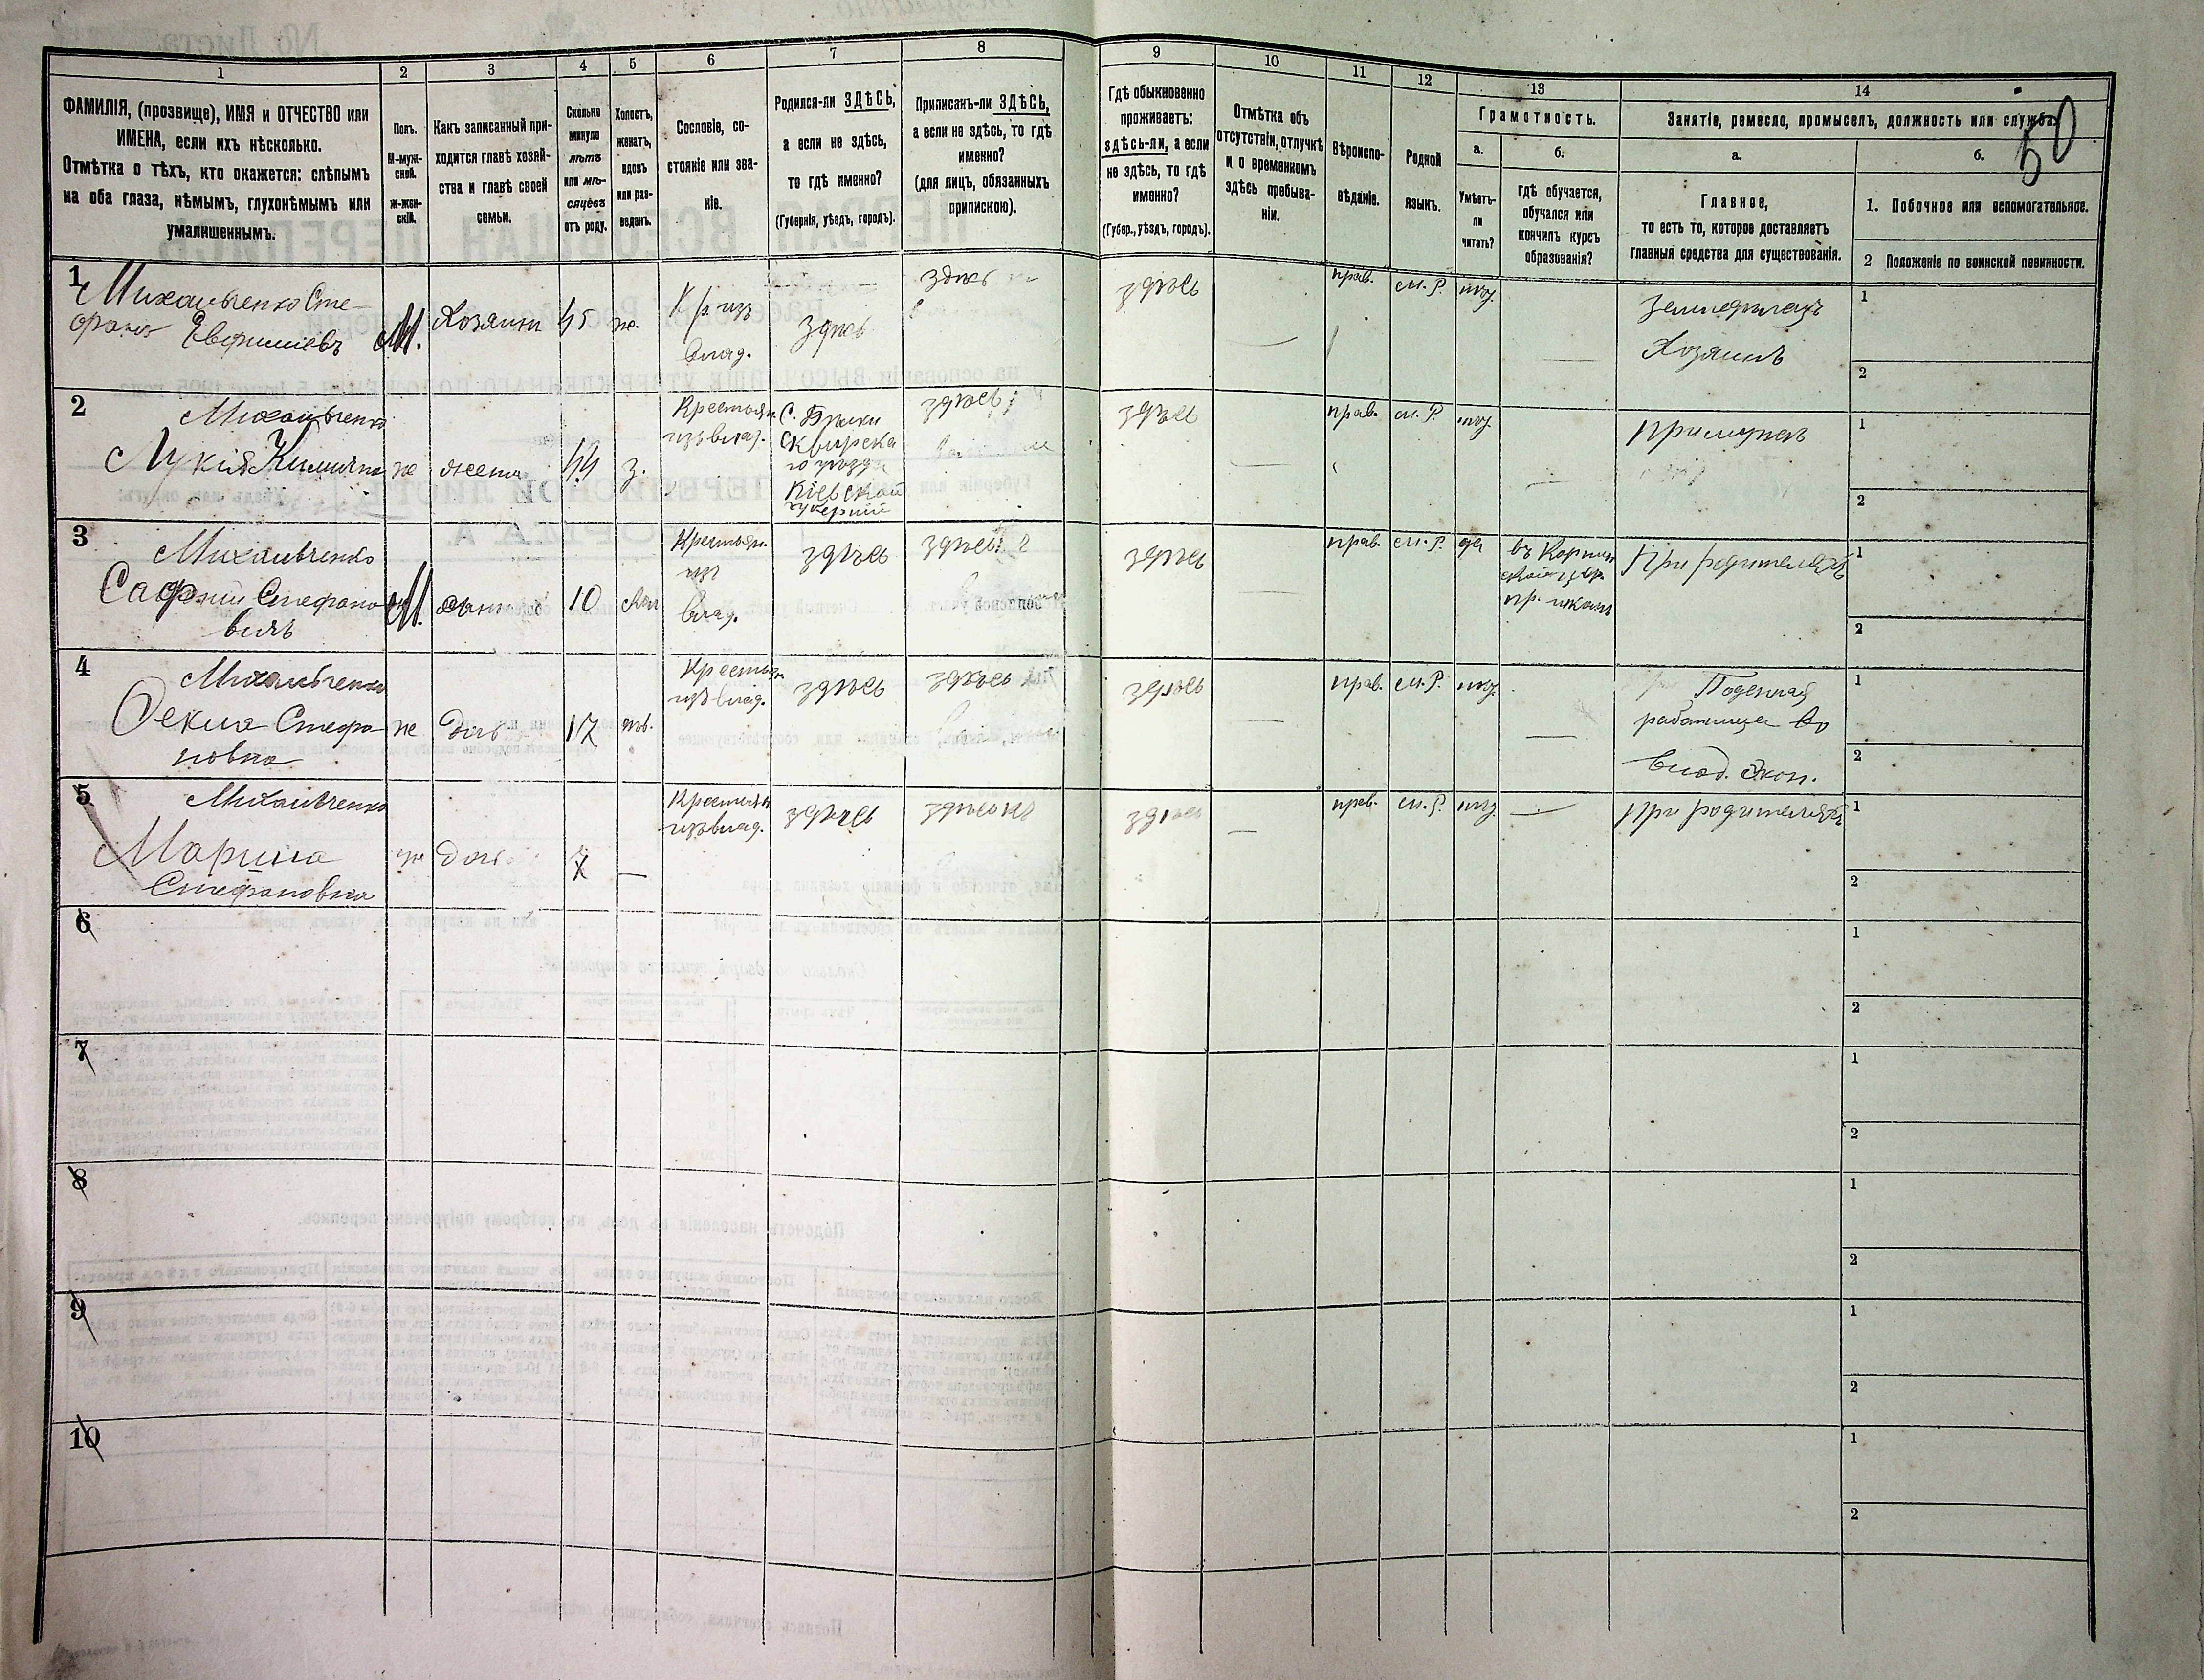 50
1
2
3
4
5
6
7
8
9
10
11
12
13
14
ФАМИЛІЯ, (прозвище), ИМЯ и ОТЧЕСТВО или
ИМЕНА, если ихъ нѣсколько.
Отмѣтка о тѣхъ, кто окажется: слѣпымъ
на оба глаза, нѣмымъ, глухонѣмымъ или
умалишеннымъ.
Полъ.
М-муж-
ской.
Ж-жен-
скій.
Какъ записанный при-
ходится главѣ хозяй-
ства и главѣ своей
семьи.
Сколько
минуло
лѣтъ
или мѣ-
сяцевъ
отъ роду.
Холостъ,
женатъ,
вдовъ
или раз-
веденъ.
Сословіе, со-
стояніе или зва-
ніе.
Родился-ли ЗДѢСЬ,
а если не здѣсь,
то гдѣ именно?
(Губернія, уѣздъ, городъ).
Приписанъ-ли ЗДѢСЬ,
а если не здѣсь, то гдѣ
именно?
(для лицъ, обязанныхъ
припискою).
Гдѣ обыкновенно
проживаетъ:
здѣсь-ли, а если
не здѣсь, то гдѣ
именно?
(Губер., уѣздъ, городъ).
Отмѣтка объ
отсутствіи, отлучкѣ
и о временномъ
здѣсь пребыва-
ніи.
Вѣроиспо-
вѣданіе.
Родной
языкъ.
Грамотность.
а.
Умѣетъ-
ли
читать?
б.
гдѣ обучается,
обучался или
кончилъ курсъ
образованія?
Занятіе, ремесло, промыселъ, должность или служба.
а.
Главное,
то есть то, которое доставляетъ
главныя средства для существованія.
б.
1. Побочное или вспомогательное.
2 Положеніе по воинской повинности.
1
Михальченко Сте-
фанъ Евфиміевъ
М.
Хозяинъ
45
ж.
Кр. изъ
влад.
здѣсь
здѣсь
здѣсь
прав.
м. р.
нѣтъ
Земледѣлецъ
Хозяинъ
1
2
2
Михальченко
Лукія
ж
жена
44
з.
Крестьян.
изъ влад.
с.
Сквирска
го уѣзда
Кіевской
губерніи
здѣсь
здѣсь
прав.
м. р.
нѣтъ
При мужѣ
1
2
3
Михальченко
Стефано
вичъ
М.
сынъ
10
хол
Крестьян.
изъ
влад.
здѣсь
здѣсь
здѣсь
прав.
м. р.
да
пр. школѣ
При родителяхъ
1
2
4
Михальченко
Ѳекла Стефа
новна
ж
дочь
17
дѣв.
Крестьян
изъ влад.
здѣсь
здѣсь
здѣсь
прав.
м. р.
нѣтъ
Поденная
работница во
влад. Экон.
1
2
5
Михальченко
Марина
Стефановна
ж
дочь
7
Крестьян
изъ влад.
здѣсь
здѣсь
здѣсь
прав.
м. р.
нѣтъ
При родителяхъ
1
2
6
1
2
7
1
2
8
1
2
9
1
2
10
1
2